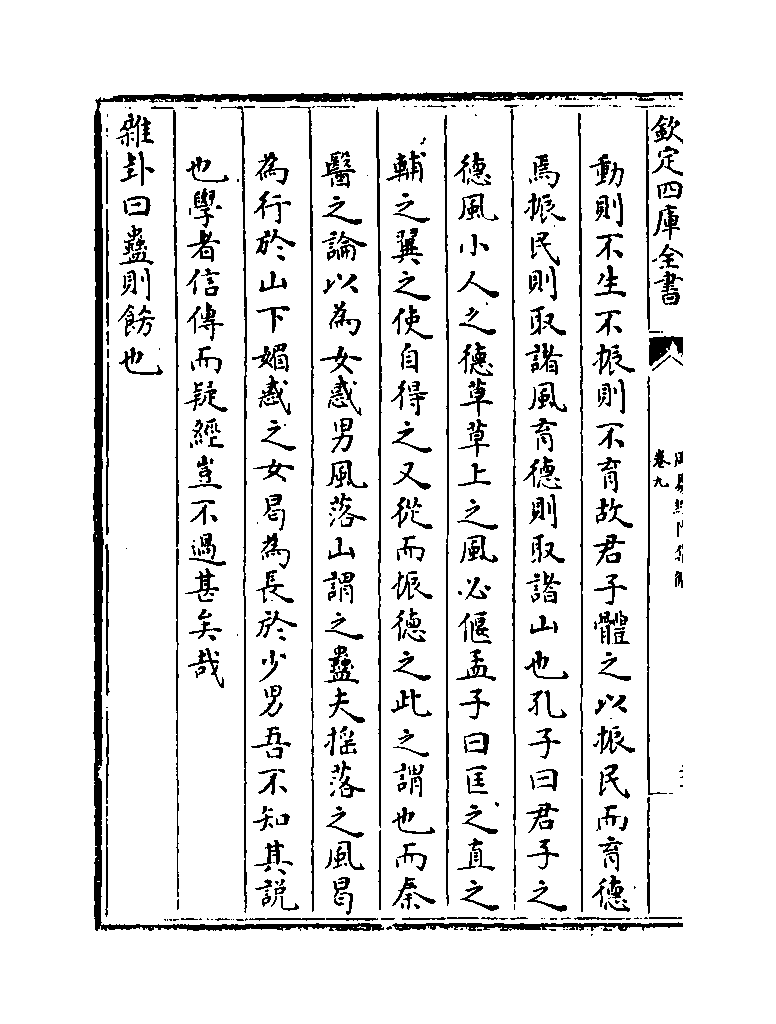 欽定四庫全書
卷九
動則不生不振則不育故君子體之以振民而育德
焉振民則取諸風育德則取諸山也孔子曰君子之
德風小人之德草草上之風必偃孟子曰匡之直之
輔之翼之使自得之又從而振德之此之謂也而秦
醫之論以為女惑男風落山謂之蠱夫揺落之風曷
為行於山下媚惑之女曷為長於少男吾不知其説
也學者信傳而疑經豈不過甚矣哉
雜卦曰蠱則飭也